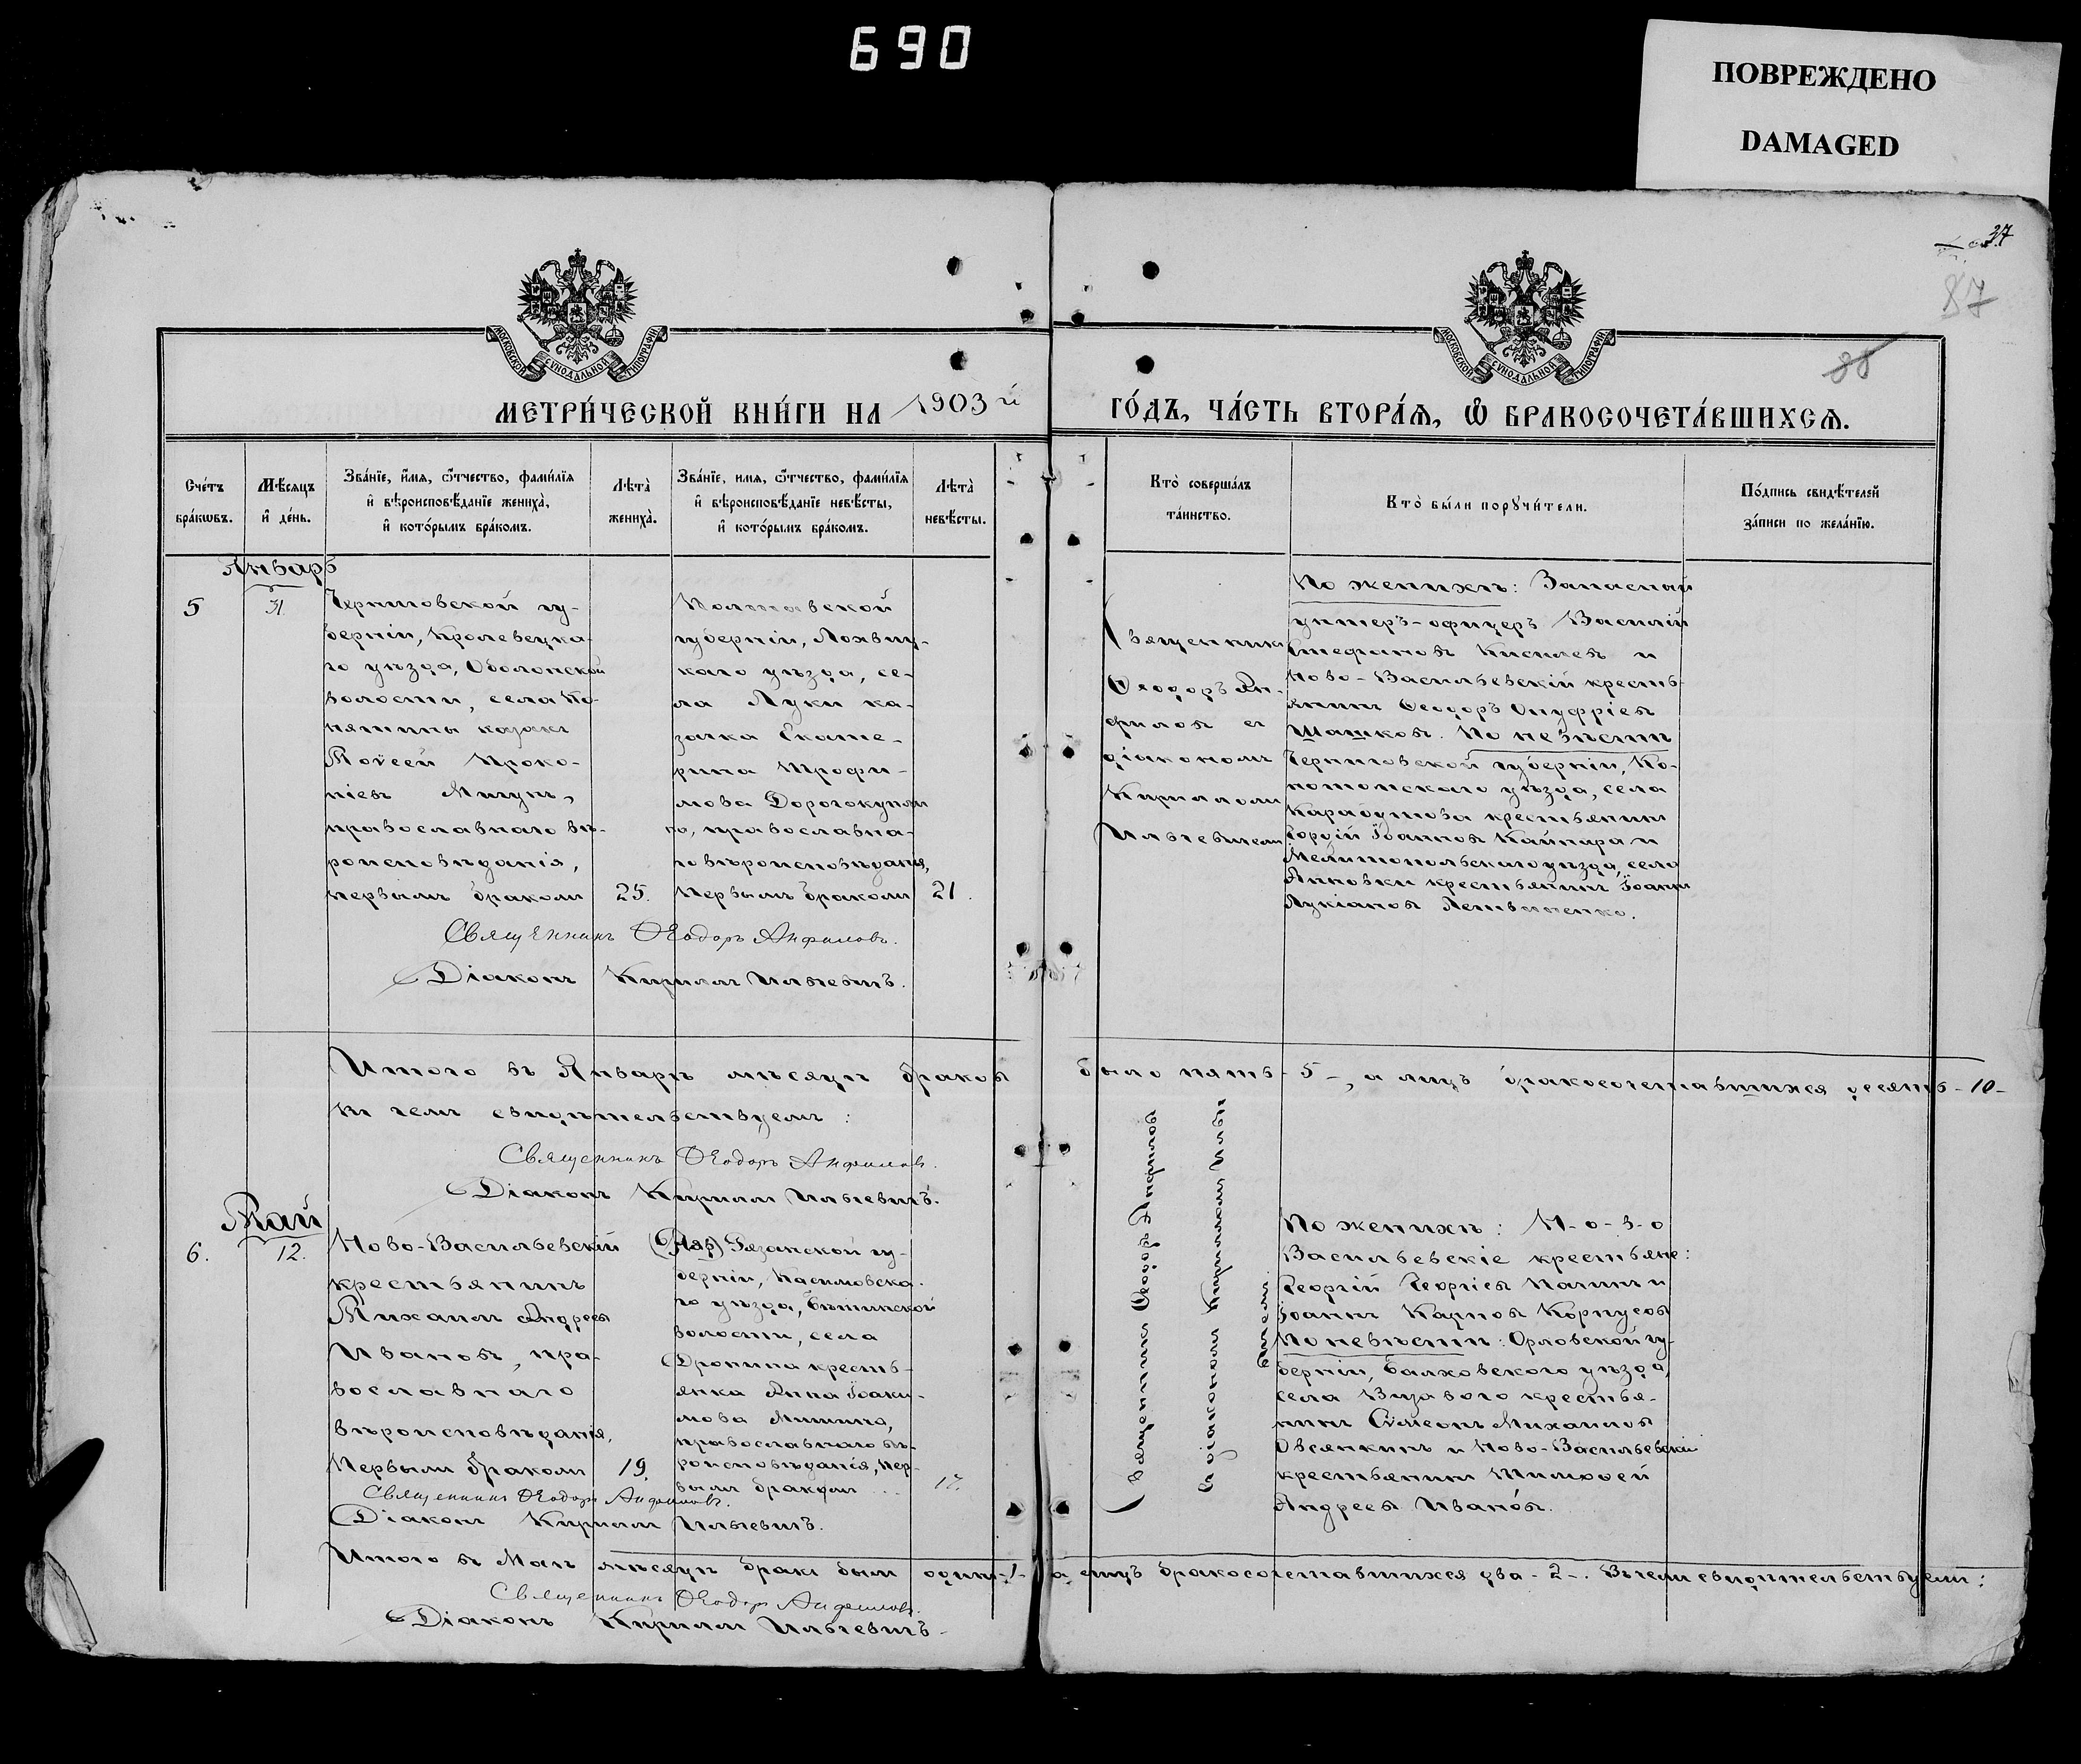 690
ПОВРЕЖДЕНО
DAMAGED
37
87
88
МОСКОВСКОЙ СУНОДАЛЬНОЙ ТИПОГРАФІИ
МОСКОВСКОЙ СУНОДАЛЬНОЙ ТИПОГРАФІИ
МЕТРИ́ЧЕСКОЙ КНИ́ГИ НА 1903 й
ГО́ДЪ, ЧА́СТЬ ВТОРА́Ѧ, Ѡ҆ БРАКОСОЧЕТА́ВШИХСѦ.
Сче́тъ
бра́кѡвъ.
Мѣ́сѧцъ
и҆ де́нь.
Зва́нїе, и҆́мѧ, ѻ҆́тчество, фами́лїѧ
и҆ вѣ́роисповѣ́данїе жениха̀,
и҆ кото́рымъ бра́комъ.
Лѣта̀
жениха̀.
Зва́нїе, имѧ, ѻ҆́тчество, фами́лїѧ
и҆ вѣ́роисповѣ́данїе невѣ́сты,
и҆ кото́рымъ бра́комъ.
Лѣта̀
невѣ́сты.
Кто̀ соверша́лъ
та́инство.
Кто̀ бы́ли порꙋчи́тели.
По́дпись свидѣ́телей
за́писи по жела́нїю.
Январь
5
31
Черниговской гу-
берніи, Кролевецка-
го уѣзда, Оболонской
волости, села По-
нятины казакъ
Моѵсей Проко-
піевъ Мигунъ,
православнаго вѣ-
роисповѣданія,
первымъ бракомъ
25.
Полтавской
губерніи, Лохвиц-
каго уѣзда, се-
ла Луки ка-
зачка Екате-
рина Трофи-
мова Дорогокупля
го, православна-
го вѣроисповѣданія,
первымъ бракомъ
21.
Священникъ
Ѳеодоръ Ан-
филовъ съ
діакономъ
Кирилломъ
Ильчевичемъ
По женихѣ: Запасный
унтеръ-офицеръ Василій
Стефановъ Киселевъ и
Ново-Васильевскій кресть-
янинъ Ѳеодоръ Онуфріевъ
Шашковъ. По невѣстѣ
Черниговской губерніи, Ко-
нотопскаго уѣзда, села
Карабутова крестьянинъ
Гордій Іоанновъ Кайпара и
Мелитопольскаго уѣзда, села
Анновки крестьянинъ Іоаннъ
Лукіановъ Литвиненко.
Священникъ Ѳеодоръ Анфиловъ.
Діаконъ Кириллъ Ильчевичъ.
Итого въ Январѣ мѣсяцѣ браковъ было пять - 5 -, а лицъ бракосочетавшихся десять - 10 -
въ чемъ свидѣтельствуемъ:
Священникъ Ѳеодоръ Анфиловъ.
Діаконъ Кириллъ Ильчевичъ.
Май
6.
12.
Ново-Васильевскій
крестьянинъ
Михаилъ Андреевъ
Ивановъ, пра-
вославнаго
вѣроисповѣданія,
первымъ бракомъ
19.
Рязанской гу-
берніи, Касимовска-
го уѣзда, Бѣтинской
волости, села
Дронина кресть-
янка Анна Іоаки-
мова Мишина,
православнаго вѣ-
роисповѣданія, пер-
вымъ бракомъ
17.
Священникъ Ѳеодоръ Анфиловъ
съ діакономъ Кирилломъ Ильче-
вичемъ.
По женихѣ: Н-о-в-о
Васильевскіе крестьяне:
Георгій Георгіевъ Палинъ и
Іоаннъ Карповъ Корпусовъ
По невѣстѣ: Орловской гу-
берніи, Балховскаго уѣзда,
села Вязового крестья-
нинъ Сѵмеонъ Михаиловъ
Овсянкинъ и Ново-Васильевскій
крестьянинъ Тимоѳей
Андреевъ Ивановъ.
Священникъ Ѳеодоръ Анфиловъ.
Діаконъ Кириллъ Ильчевичъ.
Итого въ Маѣ мѣсяцѣ бракъ былъ одинъ - 1 - а лицъ бракосочетавшихся два - 2 -. Въ чемъ свидѣтельствуемъ:
Священникъ Ѳеодоръ Анфиловъ.
Діаконъ Кириллъ Ильчевичъ.